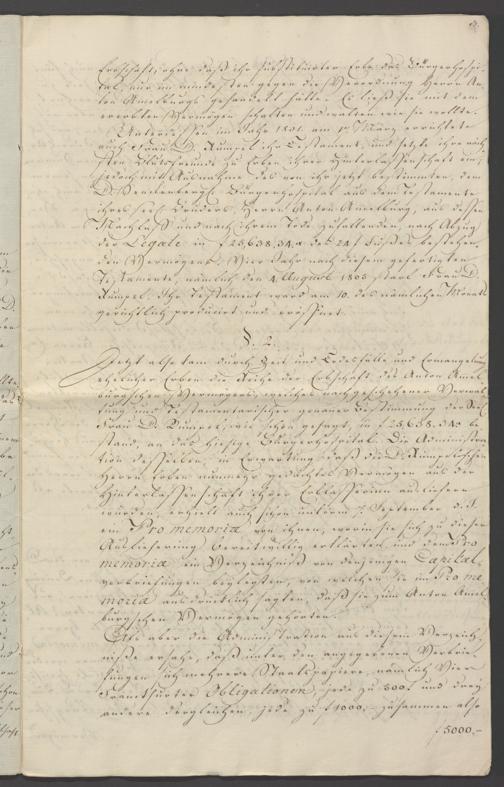 Erbschaft, ohne daß ihr substituirter Erbe das Bürgerhospi-
tal, nur im mindesten gegen die Verordnung Herrn An-
ton Amelburgs gehandelt hätte. Er ließ sie mit dem
ererbten Vermögen schalten und walten wie sie wollte.
Unterdessen im Jahr 1801. am März errichtete
auch Frau D. Rumpel ihr Testament, und setzte ihre näch-
sten Blutsfreunde zu Erben ihrer Hinterlassenschaft ein,
jedoch mit Ausnahme des von ihr jetzt bestimmten, dem
D. Senckenbergs. Bürgerhospital aus dem Testamente
ihres seel. Bruders, Herrn Anton Amelburg, aus dessen
Nachlaß und nach ihrem Tode zufallenden, nach Abzug
der Legate in f 25,638.34 x des 24 f Fußes bestehen-
den Vermögens. Vier Jahr nach diesem gefertigten
Testamente, nämlich den 4 August 1805 starb Frau D.
Rumpel. Ihr Testament ward am 10. des nämlichen Monats
gerichtlich producirt und eröffnet.
§. 2.
Jetzt also kam durch Zeit und Todesfälle und Ermangelung
ehelicher Erben die Reihe der Erbschaft des Anton Amel-
burgischen Vermögens, welches nach geschehener
und testamentarischer genauer Bestimmung der Seel.
Frau D. Rumpel, wie schon gesagt, in f 25,638.34 x be-
stand, an das hiesige Bürgerhospital. Die Administra-
tion desselben, in Erwartung, daß die D. Rumpelischen
Herrn Erben nunmehr gedachtes Vermögen aus der
Hinterlassenschaft ihrer Erblasserin ausliefern
würden, erhielt auch schon unterm 7. September d. J.
ein Pro memoria von ihnen, worin sie sich zu dieser
Auslieferung bereitwillig erklärten, und dem Pro
memoria ein Verzeichniß von denjenigen Capital-
verbriefungen beylegten, von welchen sie im Pro me
moria ausdrücklich sagten, daß sie zum Anton Amel-
burgschen Vermögen gehörten.
Als aber die Administration aus diesem Verzeich-
nisse ersahe, daß unter den angegebenen Verbrie-
fungen sich mehrere Staatspapiere, nämlich Vier
Franckfurter Obligationen, jede zu 500 f und drey
andere dergleichen, jede zu f 1000,- zusammen also
f 5000.-